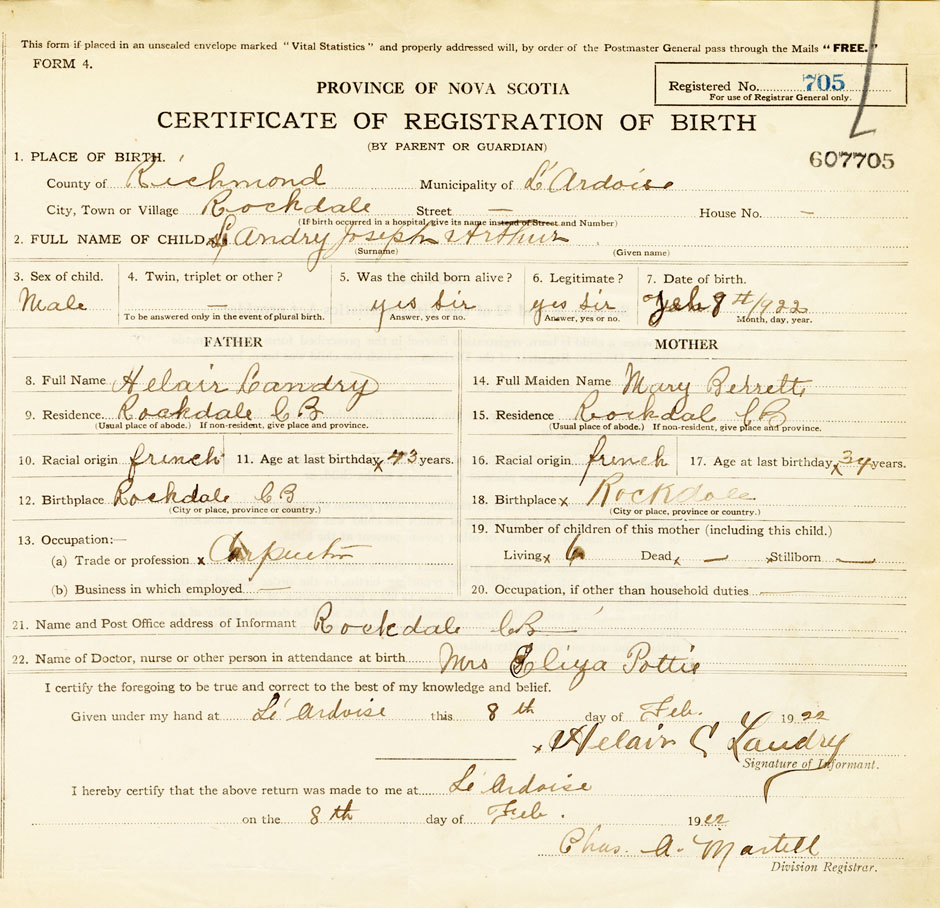 This form if placed in an unsealed envelope marked "Vital Statistics" and properly addressed will, by order of the Postmaster General pass through the Mails "FREE."
FORM 4.
PROVINCE OF NOVA SCOTIA
Registered No. 705
For use of Registrar General only.
CERTIFICATE OF REGISTRATION OF BIRTH
(BY PARENT OR GUARDIAN)
607705
1. PLACE OF BIRTH.
County of Richmond Municipality of L'Ardoise
City, Town or Village Rockdale Street — House No. —
(If birth occurred in a hospital, give its name instead of Street and Number)
2. FULL NAME OF CHILD Landry Joseph Arthur
(Surname) (Given name)
3. Sex of child. 4. Twin, triplet or other? 5. Was the child born alive? 6. Legitimate? 7. Date of birth.
Male — yes Sir yes Sir Feb 8th/1922
To be answered only in the event of plural birth. Answer, yes or no. Answer, yes or no. Month, day, year.
FATHER MOTHER
8. Full Name Helair Landry 14. Full Maiden Name Mary Berrett
9. Residence Rockdale CB 15. Residence Rockdal CB
(Usual place of abode.) If non-resident, give place and province. (Usual place of abode.) If non-resident, give place and province.
10. Racial origin french 11. Age at last birthday x 43 years. 16. Racial origin french 17. Age at last birthday x 34 years.
12. Birthplace Rockdale CB 18. Birthplace x Rockdale
(City or place, province or country.) (City or place, province or country.)
13. Occupation:— 19. Number of children of this mother (including this child.)
(a) Trade or profession x Carpenter Living x 6 Dead x — x Stillborn —
(b) Business in which employed — 20. Occupation, if other than household duties —
21. Name and Post Office address of Informant Rockdale CB
22. Name of Doctor, nurse or other person in attendance at birth Mrs Eliza Pottie
I certify the foregoing to be true and correct to the best of my knowledge and belief.
Given under my hand at Le' Ardoise this 8th day of Feb. 1922
x Helair C Landry
Signature of Informant.
I hereby certify that the above return was made to me at Le' Ardoise
on the 8th day of Feb. 1922
Chas. A. Martell
Division Registrar.